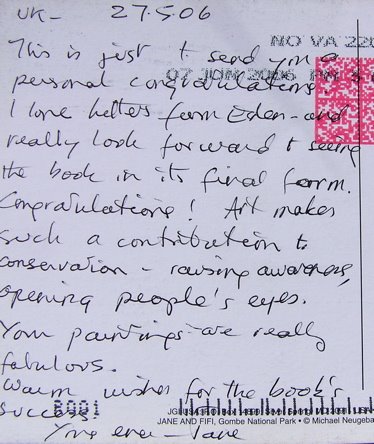 UK - 27.5.06
This is just to send you a
NO VA 220
personal congratulations!
07 JUN 2006 PM
I love Letters from Eden - and
really look forward to seeing
the book in its final form.
Congratulations! Art makes
such a contribution to
conservation - raising awareness,
opening people's eyes.
Your paintings are really
fabulous.
Warm wishes for the book's
success.
JANE AND FIFI, Gombe National Park • © Michael Neugeba
Yours ever - Jane